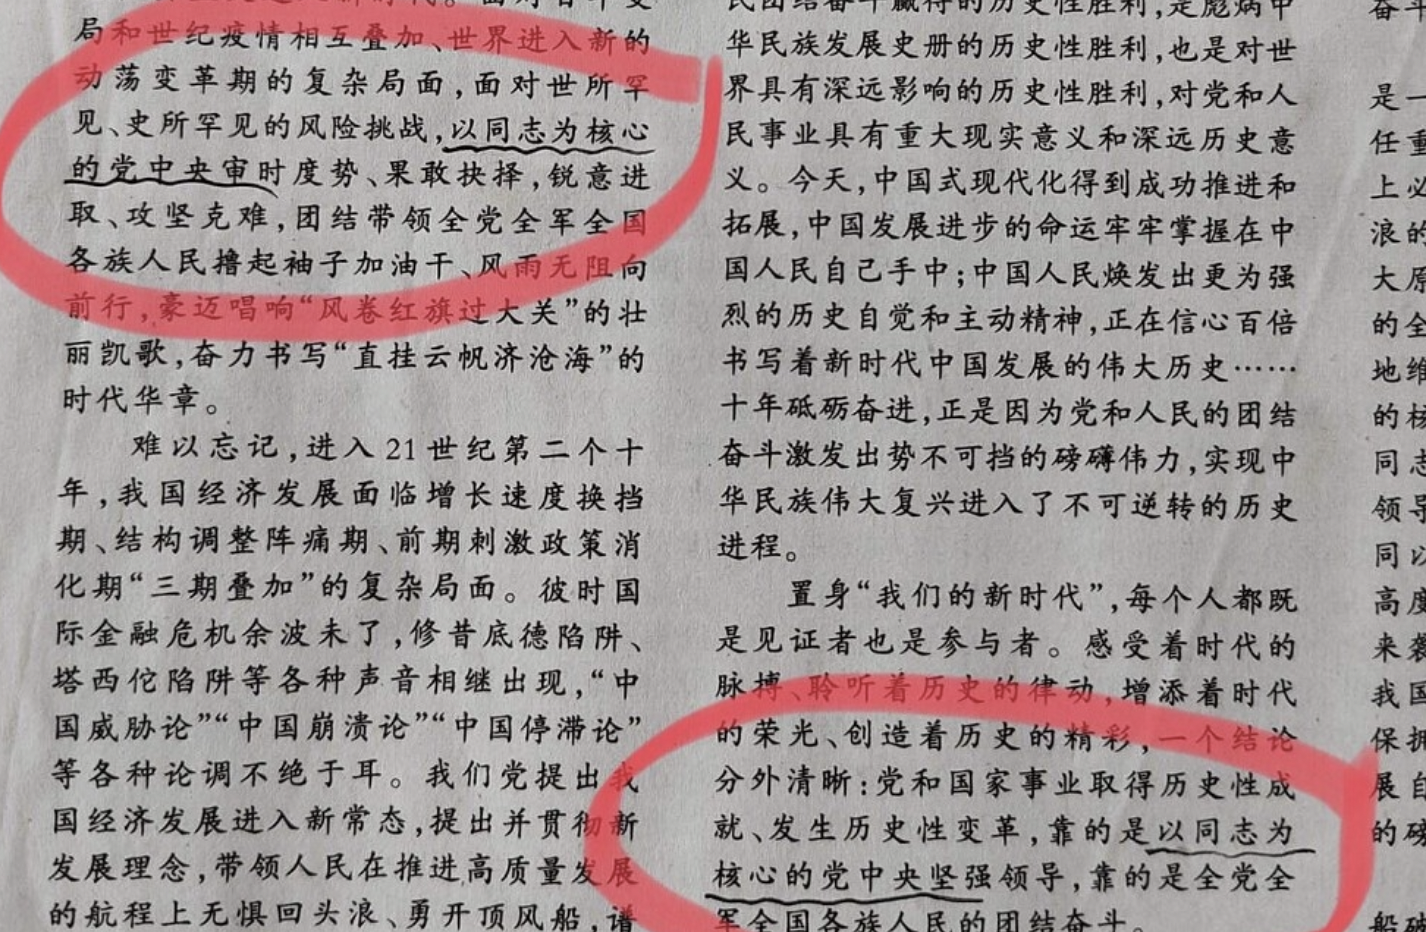 局和世纪疫情相互叠加、世界进入新的
动荡变革期的复杂局面,面对世所罕
见、史所罕见的风险挑战,以同志为核心
的党中央审时度势、果敢抉择,锐意进
取、攻坚克难,团结带领全党全军全国
各族人民撸起袖子加油干、风雨无阻向
前行,豪迈唱响“风卷红旗过大关”的壮
丽凯歌,奋力书写“直挂云帆济沧海”的
时代华章。
难以忘记,进入21世纪第二个十
年,我国经济发展面临增长速度换挡
期、结构调整阵痛期、前期刺激政策消
化期“三期叠加”的复杂局面。彼时国
际金融危机余波未了,修昔底德陷阱、
塔西佗陷阱等各种声音相继出现,“中
国威胁论”“中国崩溃论”“中国停滞论”
等各种论调不绝于耳。我们党提出我
国经济发展进入新常态,提出并贯彻新
发展理念,带领人民在推进高质量发展
的航程上无惧回头浪、勇开顶风船,谱
民团结奋斗赢得的历史性胜利,是彪炳中
华民族发展史册的历史性胜利,也是对世
界具有深远影响的历史性胜利,对党和人
民事业具有重大现实意义和深远历史意
义。今天,中国式现代化得到成功推进和
拓展,中国发展进步的命运牢牢掌握在中
国人民自己手中;中国人民焕发出更为强
烈的历史自觉和主动精神,正在信心百倍
书写着新时代中国发展的伟大历史……
十年砥砺奋进,正是因为党和人民的团结
奋斗激发出势不可挡的磅礴伟力,实现中
华民族伟大复兴进入了不可逆转的历史
进程。
置身“我们的新时代”,每个人都既
是见证者也是参与者。感受着时代的
脉搏、聆听着历史的律动,增添着时代
的荣光、创造着历史的精彩,一个结论
分外清晰:党和国家事业取得历史性成
就、发生历史性变革,靠的是以同志为
核心的党中央坚强领导,靠的是全党全
军全国各族人民的团结奋斗。
奋斗
是一
任重
上必
浪的
大原
的全
地维
的核
同志
领导
同以
高度
来袭
我国
保拥
展自
的磅
船破